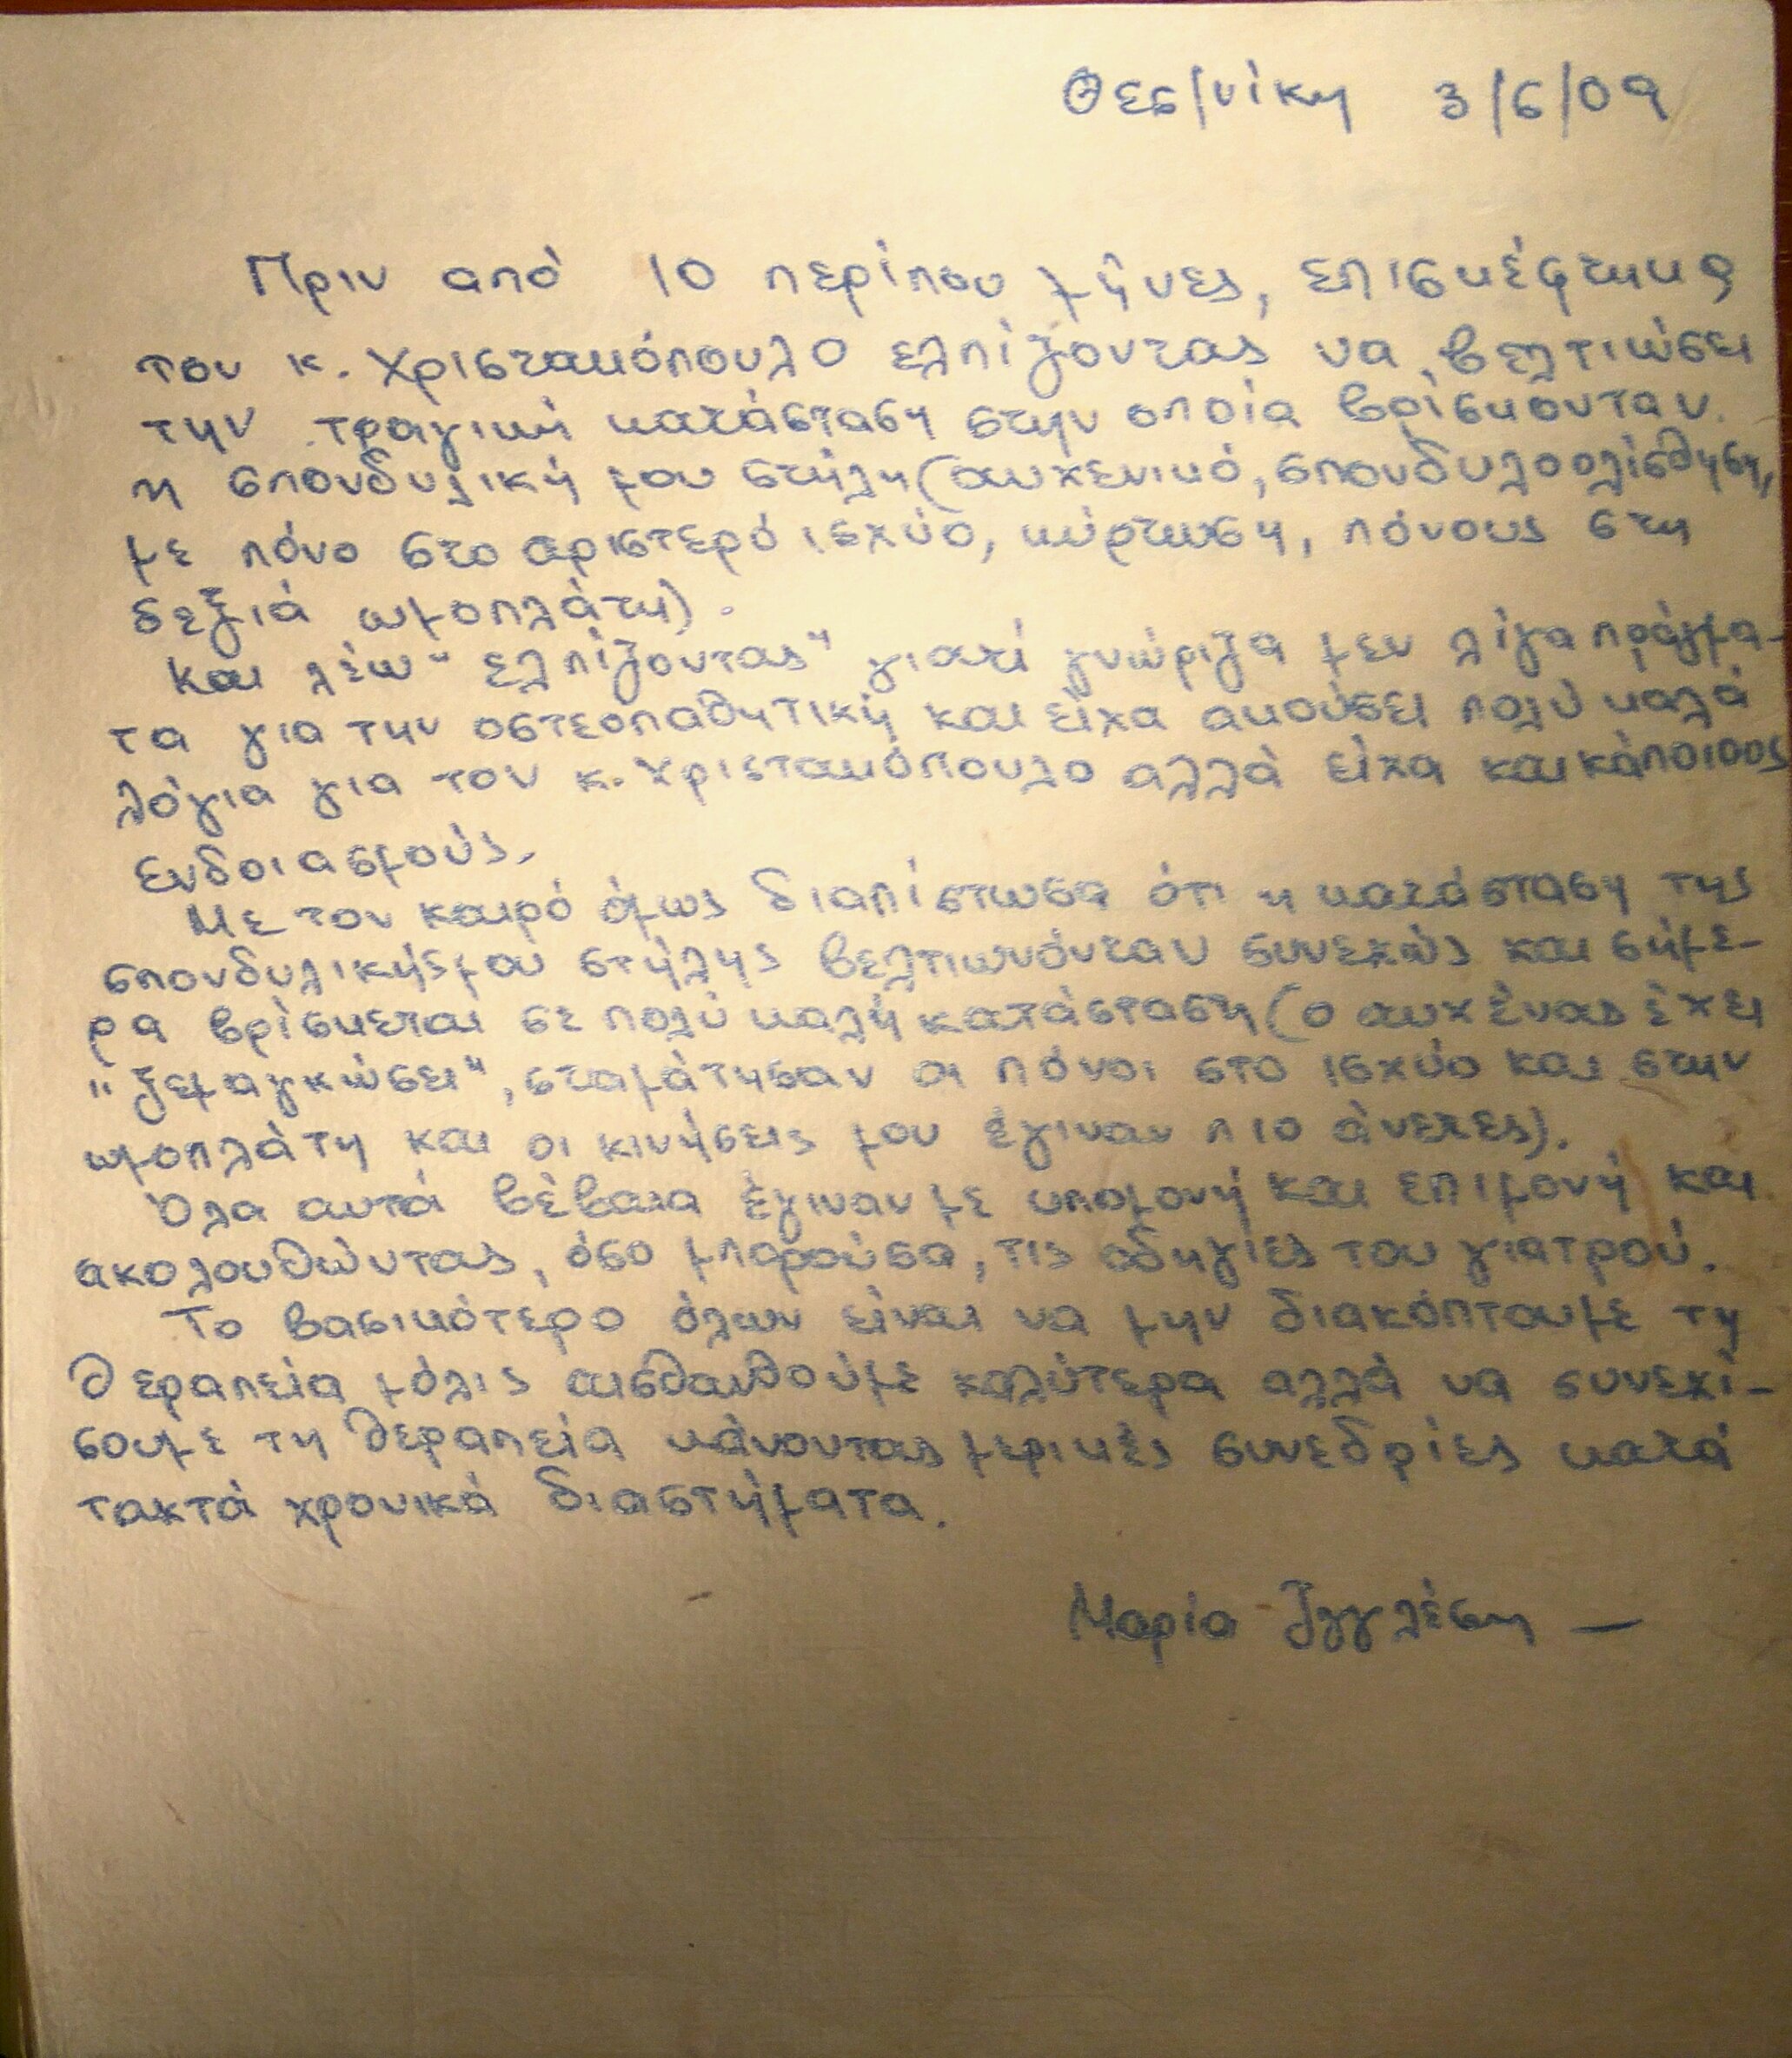 Θεσ/νίκη 3/6/09
Πριν από 10 περίπου μήνες, επισκέφτηκα
τον κ. Χριστακόπουλο ελπίζοντας να βελτιώσει
την τραγική κατάσταση στην οποία βρίσκονταν
η σπονδυλική μου στήλη (αυχενικό, σπονδυλοολίσθηση,
με πόνο στο αριστερό ισχύο, κύρτωση, πόνους στη
δεξιά ωμοπλάτη).
Και λέω "ελπίζοντας" γιατί γνώριζα μεν λίγα πράγμα-
τα για την οστεοπαθητική και είχα ακούσει πολύ καλά
λόγια για τον κ. Χριστακόπουλο αλλά είχα και κάποιους
ενδοιασμούς.
Με τον καιρό όμως διαπίστωσα ότι η κατάσταση της
σπονδυλικής μου στήλης βελτιωνόνταν συνεχώς και σήμε-
ρα βρίσκεται σε πολύ καλή κατάσταση (ο αυχένας έχει
"ξεμαγκώσει", σταμάτησαν οι πόνοι στο ισχύο και στην
ωμοπλάτη και οι κινήσεις μου έγιναν πιο άνετες).
Όλα αυτά βέβαια έγιναν με υπομονή και επιμονή και
ακολουθώντας, όσο μπορούσα, τις οδηγίες του γιατρού.
Το βασικότερο όλων είναι να μην διακόπτουμε τη
θεραπεία μόλις αισθανθούμε καλύτερα αλλά να συνεχί-
σουμε τη θεραπεία κάνοντας μερικές συνεδρίες κατά
τακτά χρονικά διαστήματα.
Μαρία Ιγγλέση